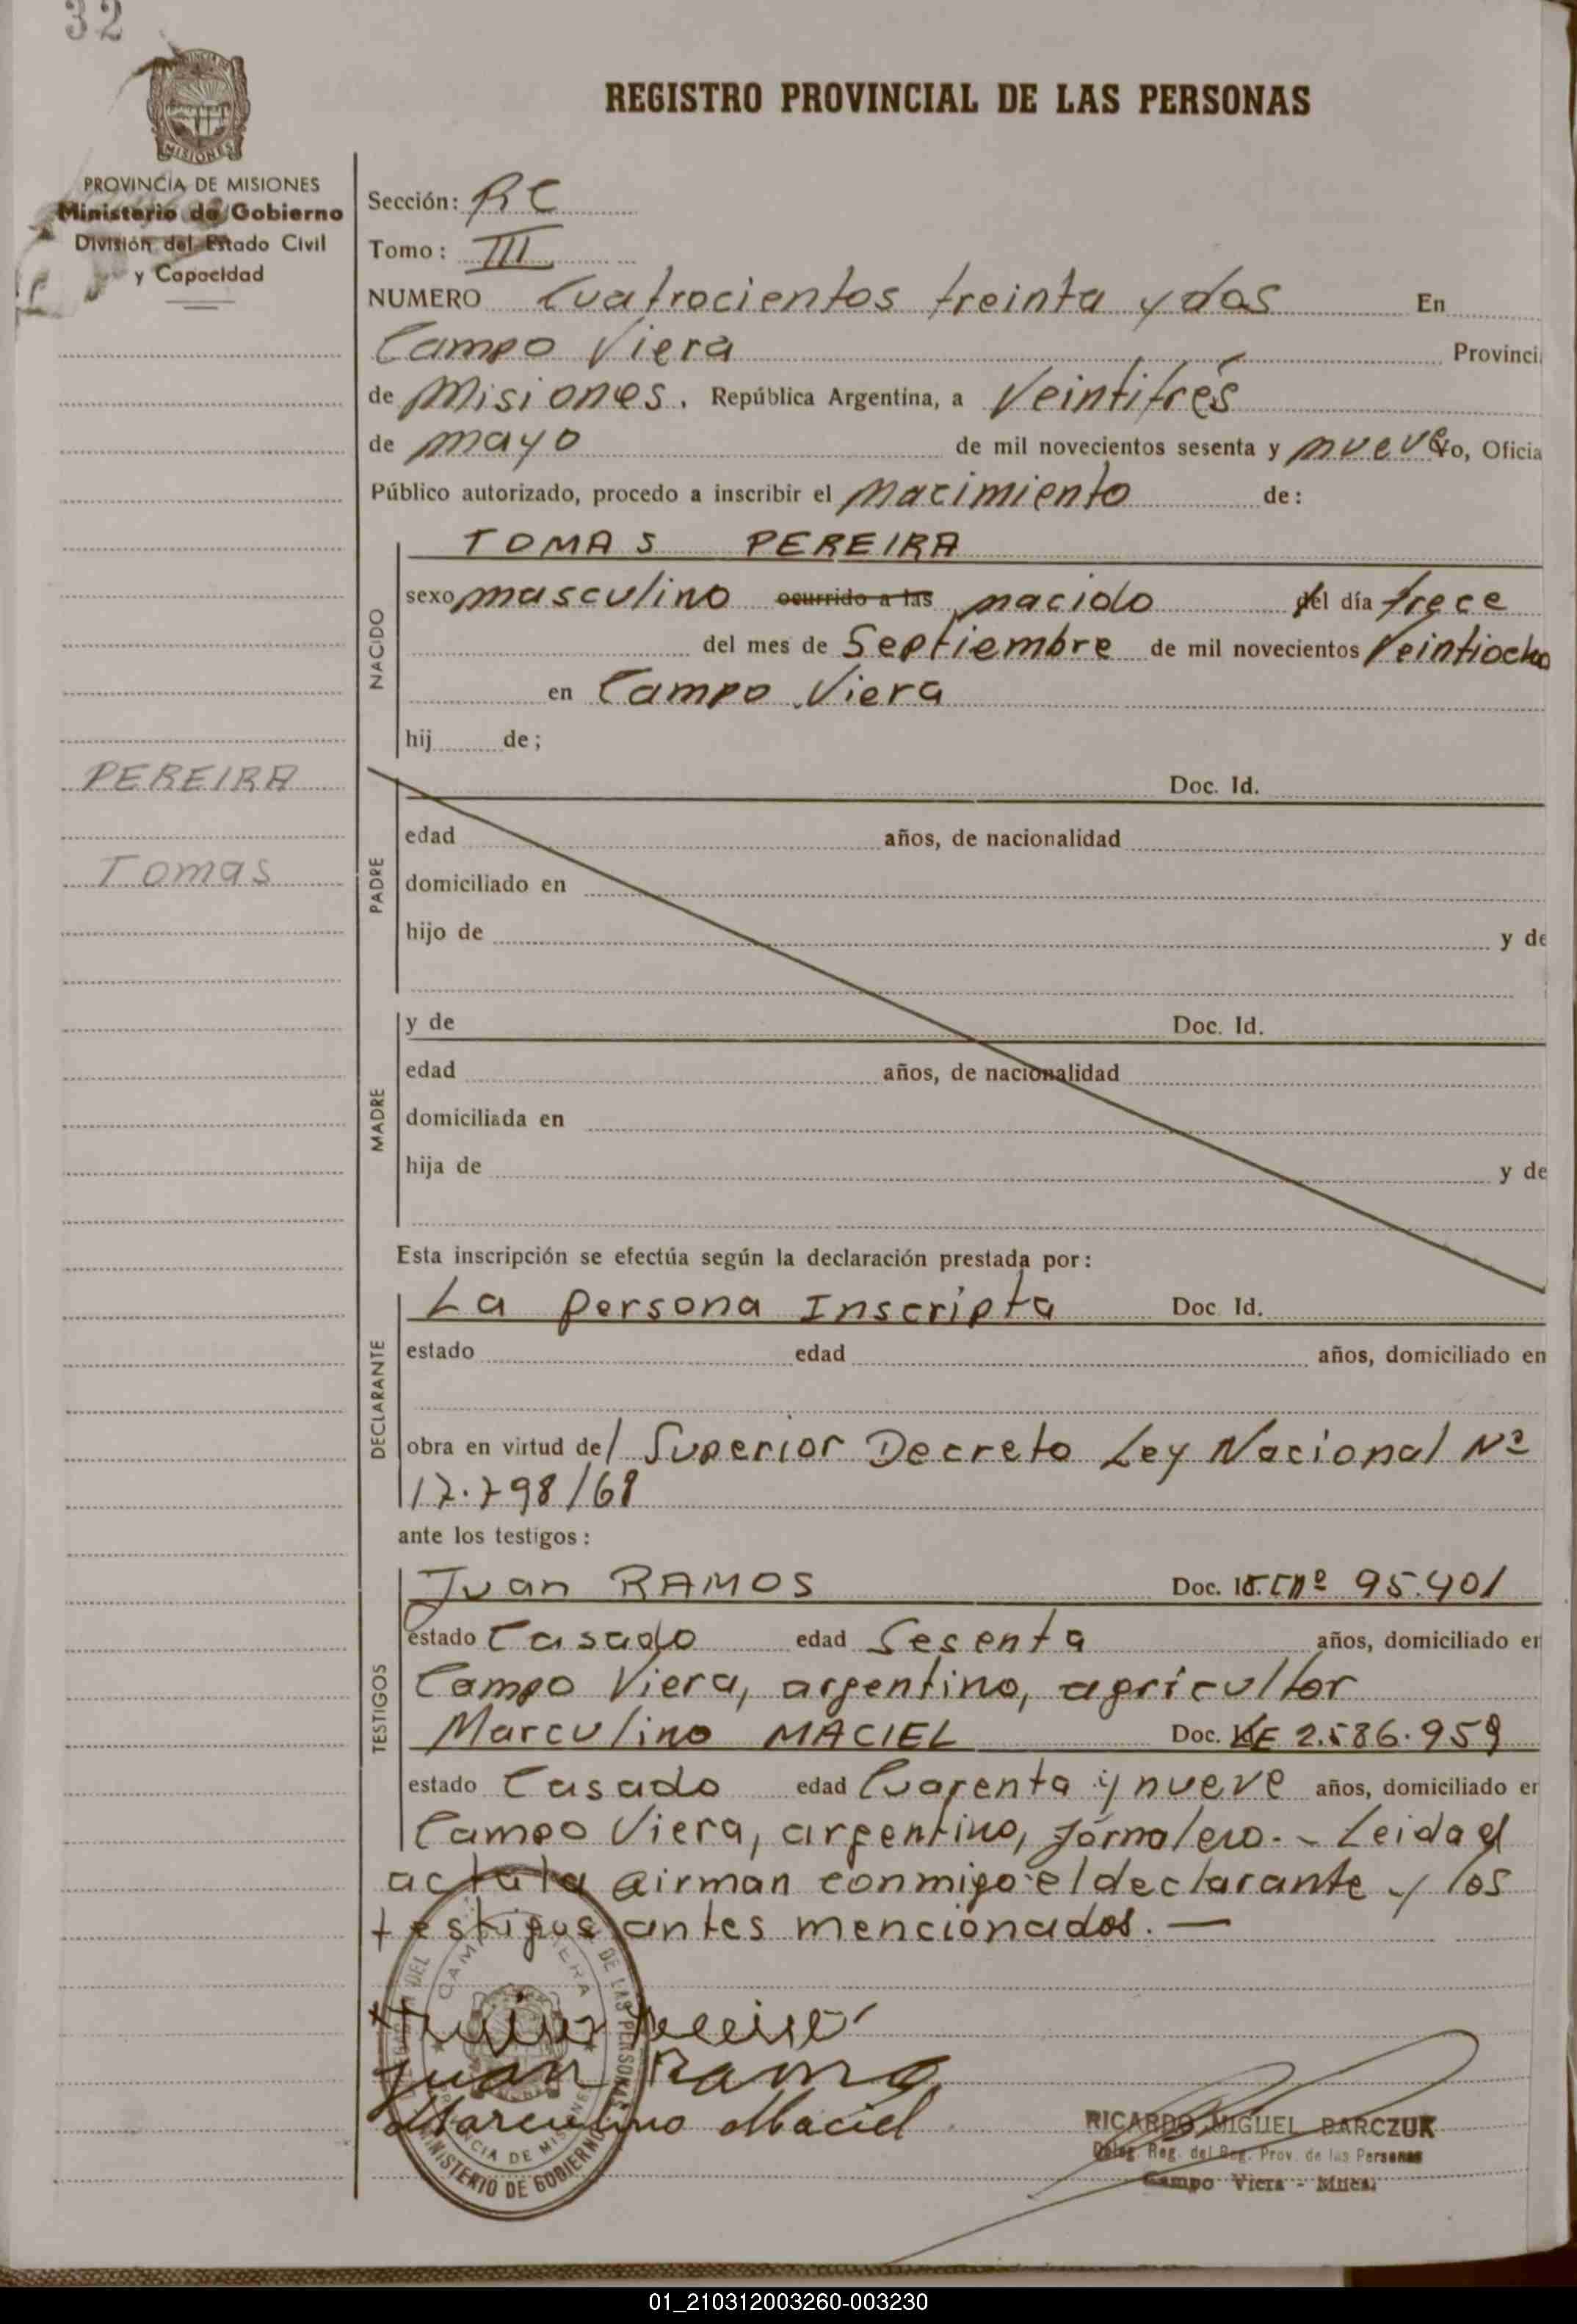 32
MISIONES
PROVINCIA DE MISIONES
Ministerio de Gobierno
División del Estado Civil
y Capacidad
REGISTRO PROVINCIAL DE LAS PERSONAS
Sección: RC
Tomo: III
NUMERO Cuatrocientos treinta y dos En
Campo Viera Provinci
de Misiones. República Argentina, a Veintitrés
de mayo de mil novecientos sesenta y nueve yo, Oficia
Público autorizado, procedo a inscribir el nacimiento de:
NACIDO
TOMAS PEREIRA
sexo masculino ocurrido a las nacido del día trece
del mes de Septiembre de mil novecientos Veintiocho
en Campo Viera
hij de;
PEREIRA
Tomas
PADRE
Doc. Id.
edad años, de nacionalidad
domiciliado en
hijo de y de
MADRE
y de Doc. Id.
edad años, de nacionalidad
domiciliada en
hija de y de
Esta inscripción se efectúa según la declaración prestada por:
DECLARANTE
La persona Inscripta Doc Id.
estado edad años, domiciliado en
obra en virtud del Superior Decreto Ley Nacional Nº
17.798/68
ante los testigos:
TESTIGOS
Juan RAMOS Doc. nº 95.401
estado Casado edad Sesenta años, domiciliado en
Campo Viera, argentino, agricultor
Marculino MACIEL Doc. 2.586.959
estado Casado edad Cuarenta y nueve años, domiciliado en
Campo Viera, argentino, jornalero.- Leida el
acta la firman conmigo el declarante y los
testigos antes mencionados.—
CAMPO VIERA
DE LAS PERSONAS
PROVINCIA DE MISIONES
MINISTERIO DE GOBIERNO
Juan Ramo
Marculino Maciel
RICARDO MIGUEL DARCZUK
Deleg. Reg. del Reg. Prov. de las Personas
Campo Viera - Mnes.
01_210312003260-003230